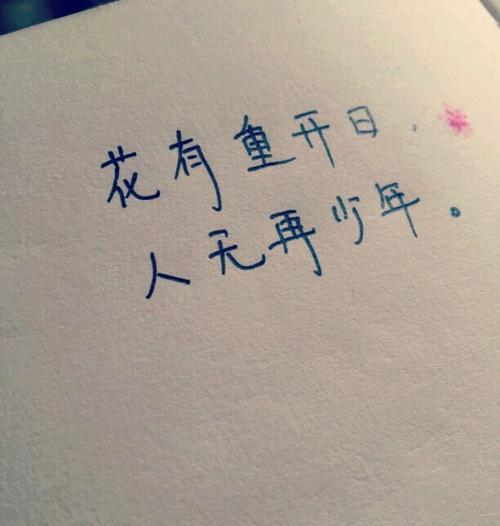 花有重开日.
人无再少年。